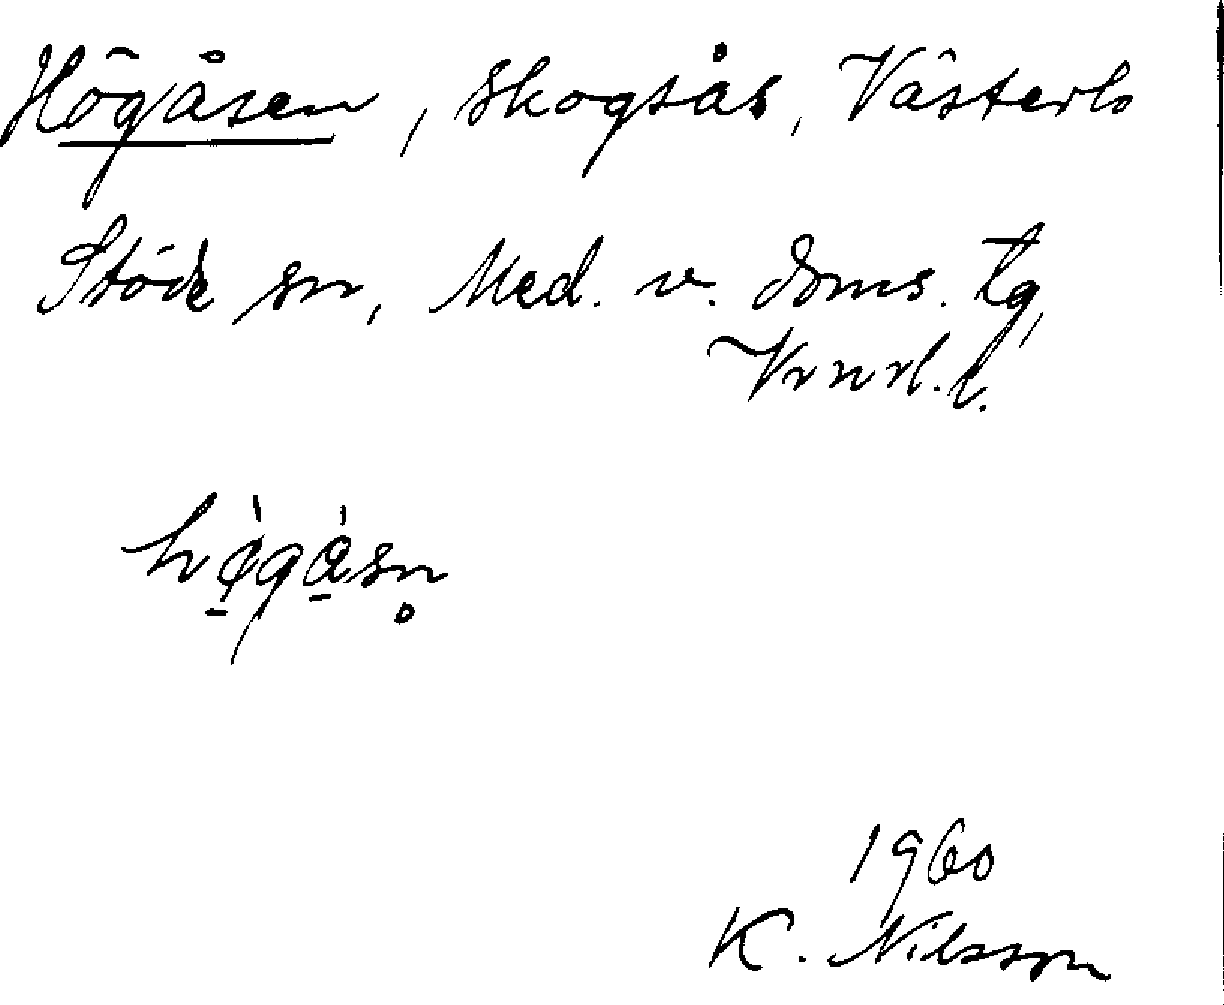 Högåsen, skogsås, Västerlo
Stöde sn, Med. v. doms. tg,
Vrnrl. l.
hø̠̀gå̠̀sn̥
1960
K. Nilsson